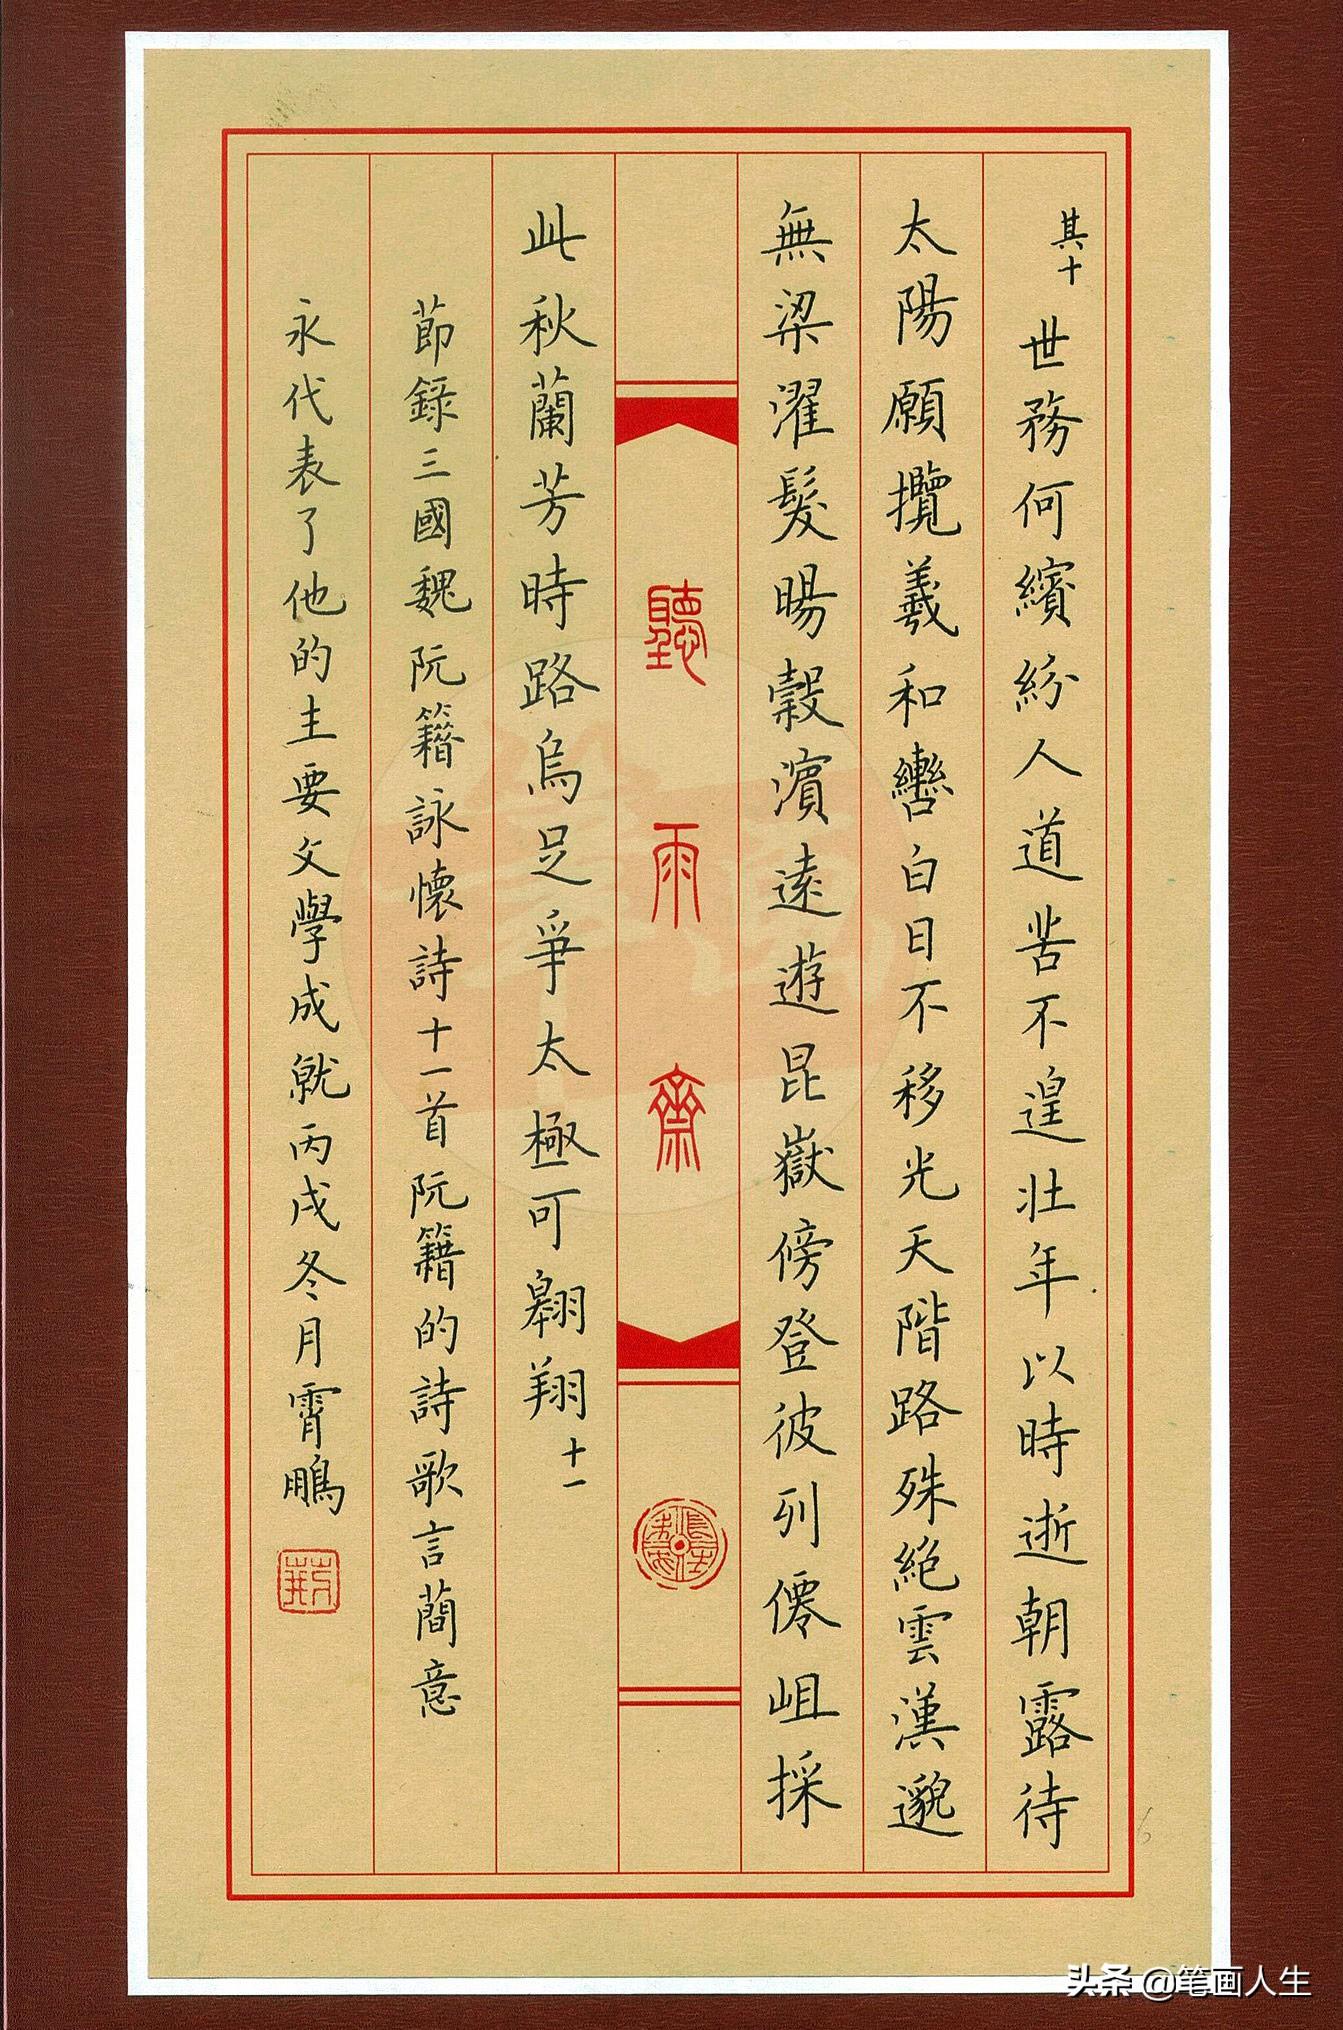 其十 世務何繽紛人道苦不遑壯年以時逝朝露待
太陽願攬羲和轡白日不移光天階路殊絕雲漢邈
無梁濯髮暘穀濱遠遊昆嶽傍登彼列僊岨採
聽雨齋
此秋蘭芳時路烏足爭太極可翱翔 十一
節錄三國魏阮籍詠懷詩十一首阮籍的詩歌言蕳意
永代表了他的主要文學成就丙戌冬月霄鵬
头条 @笔画人生